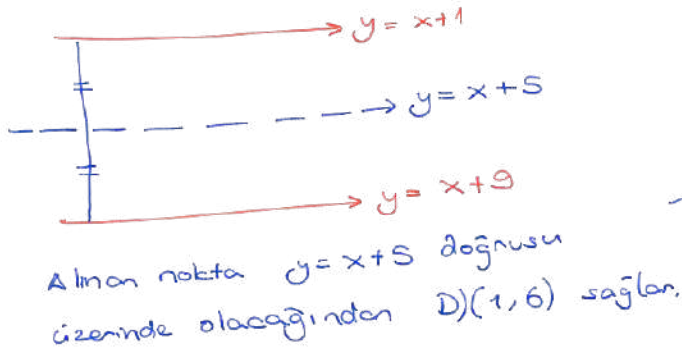 y = x+1
y = x+5
y = x+9
Alınan nokta y=x+5 doğrusu
üzerinde olacağından D)(1,6) sağlar.